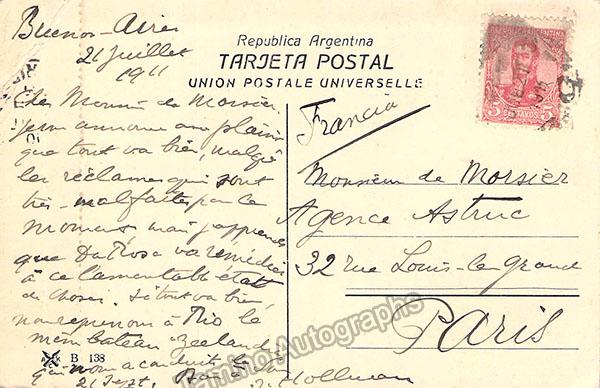 Buenos-Aires
21 juillet
1911
Republica Argentina
TARJETA POSTAL
UNION POSTALE UNIVERSELLE
5 CENTAVOS 5
Cher Monsieur de Morsier.
Je vous annonce avec plaisir
que tout va bien, malgré
les réclames qui sont
très-mal faites pour le
moment, mais j'apprends
que Da Rosa va remédier
à ce lamentable état
de choses. Si tout va bien,
nous reprenons à Rio le
même bateau Zeeland
qui nous a conduit
21 Sept.
Hollman
Francia
Monsieur de Morsier
Agence Astruc
32 rue Louis-le-Grand
Paris
B 138
Tamino Autographs